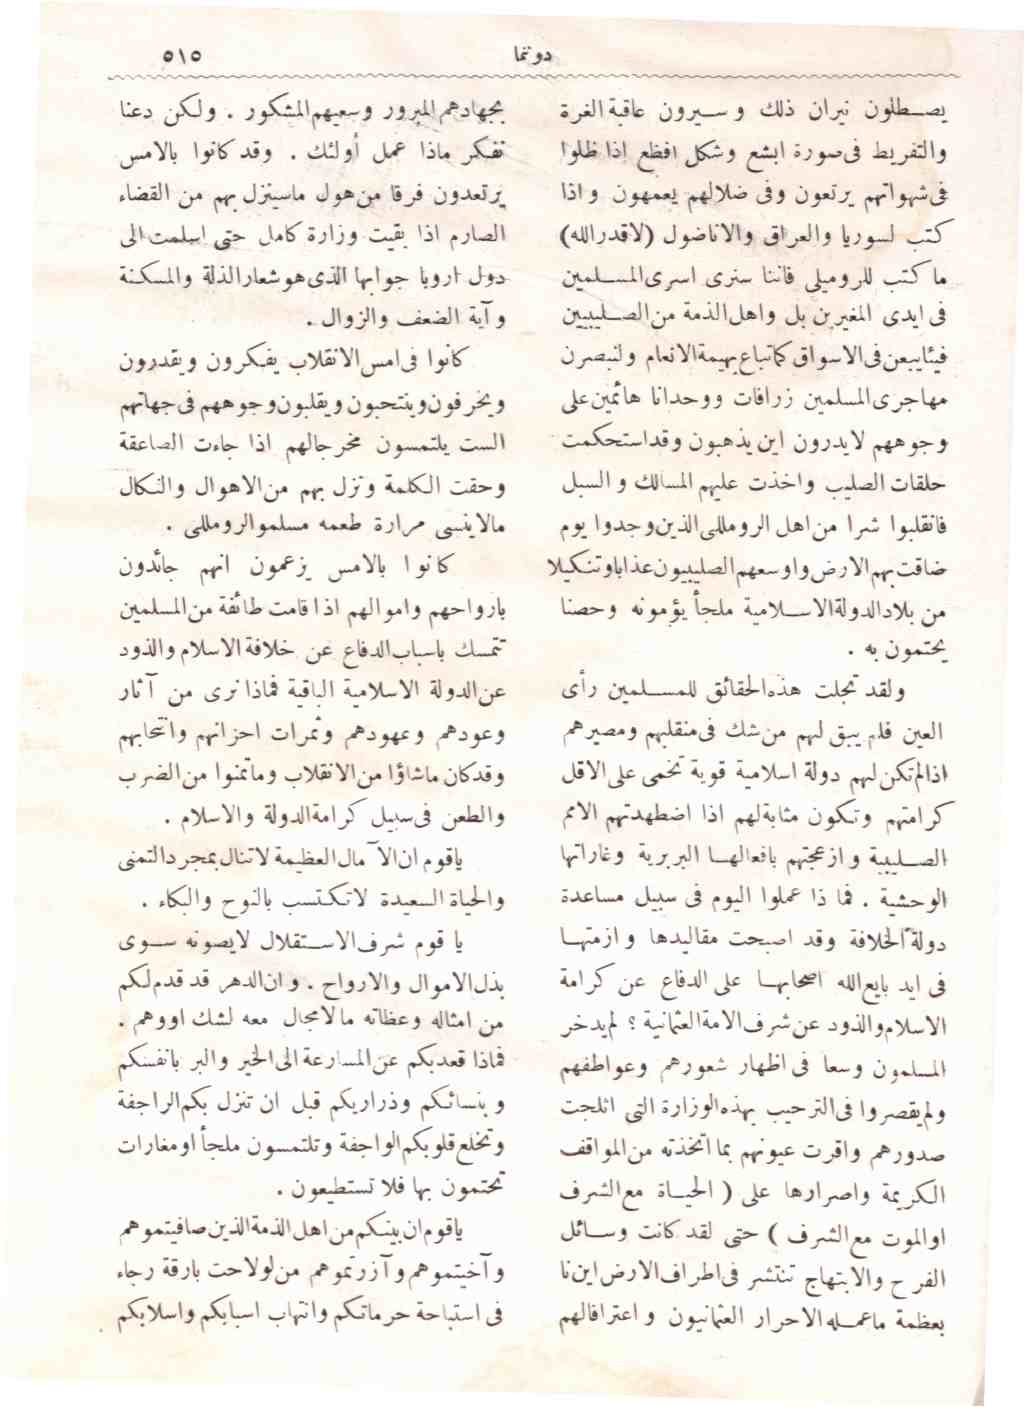 دوننما
٥١٥
يصـطلون نيران ذلك و سـيرون عاقبة الغرة
والتفريط فى صورة ابشع وشكل افظع اذا ظلوا
فى شهواتهم يرتعون وفى ضلالهم يعمهون واذا
كتب لسوريا والعراق والاناضول (لاقدرالله)
ما كتب للروميلى فاننا سنرى اسرى المسـلمين
فى ايدى المغيرين بل واهل الذمة من الصـليبيين
فيئايبعن فى الاسواق كماتباع بهيمة الانعام ولنبصرن
مهاجرى المسلمين زرافات ووحدانا هائمين على
وجوههم لايدرون اين يذهبون وقد استحكمت
حلقات الصليب واخذت عليهم المسالك و السبل
فانقلبوا شرا من اهل الروملى الذين وجدوا يوم
ضاقت بهم الارض واوسعهم الصليبيون عذابا وتنكيلا
من بلاد الدولة الاسـلامية ملجأ يؤمونه وحصنا
يحتمون به .
ولقد تجلت هذه الحقائق للمسـلمين رأى
العين فلم يبق لهم من شك فى منقلبهم ومصيرهم
اذا لم تكن لهم دولة اسلامية قوية تحمى على الاقل
كرامتهم وتكون مثابة لهم اذا اضطهدتهم الامم
الصـليبية وازعجتهم بافعالهـا البربرية وغاراتها
الوحشية . فما ذا عملوا اليوم فى سبيل مساعدة
دولة الخلافة وقد اصبحت مقاليدها وازمتهـا
فى ايد بايع الله اصحابهـا على الدفاع عن كرامة
الاسلام والذود عن شرف الامة العثمانية ؟ لم يدخر
المسلمون وسعا فى اظهار شعورهم وعواطفهم
ولم يقصروا فى الترحيب بهذه الوزارة التى اثلجت
صدورهم واقرت عيونهم بما اتخذته من المواقف
الكريمة واصرارها على ( الحيـاة مع الشرف
اوالموت مع الشرف ) حتى لقد كانت وسـائل
الفرح والابتهاج تنتشر فى اطراف الارض اين نا
بعظمة ماعمـله الاحرار العثمانيون واعترافالهم
بجهادهم المبرور وسعيهم المشكور . ولكن دعنا
نفكر ماذا عمل أولئك . وقد كانوا بالامس
يرتعدون فرقا من هول ماسينزل بهم من القضاء
الصارم اذا بقيت وزارة كامل حتى اسلمت الى
دول اروبا جوابها الذى هو شعار الذلة والمسكنة
وآية الضعف والزوال .
كانوا فى امس الانقلاب يفكرون ويقدرون
ويخرفون وينتحبون ويقلبون وجوههم فى جهاتهم
الست يلتمسون مخرجالهم اذا جاءت الصاعقة
وحقت الكلمة ونزل بهم من الاهوال والنكال
مالاينسى مرارة طعمه مسلموالروملى .
كانوا بالامس يزعمون انهم جائدون
بارواحهم واموالهم اذا قامت طائفة من المسلمين
تتمسك باسباب الدفاع عن خلافة الاسلام والذود
عن الدولة الاسلامية الباقية فماذا نرى من آثار
وعودهم وعهودهم وثمرات احزانهم وانتحابهم
وقد كان ماشاؤا من الانقلاب وماتمنوا من الضرب
والطعن فى سبيل كرامة الدولة والاسلام .
ياقوم ان الآمال العظيمة لاتنال بمجرد التمنى
والحياة السعيدة لاتكتسب بالنوح والبكاء .
يا قوم شرف الاسـتقلال لايصونه سـوى
بذل الاموال والارواح . وان الدهر قد قدم لكم
من امثاله وعظاته مالامجال معه لشك او وهم .
فماذا قعد بكم عن المسارعة الى الخير والبر بانفسكم
وبنسائكم وذراريكم قبل ان تنزل بكم الراجفة
وتخلع قلوبكم الواجفة وتلتمسون ملجأ او مغارات
تحتمون بها فلا تستطيعون .
ياقوم ان بينكم من اهل الذمة الذين صافيتموهم
وآخيتموهم وآزرتموهم من لولاحت بارقة رجاء
فى استباحة حرماتكم وانتهاب اسبابكم واسلابكم